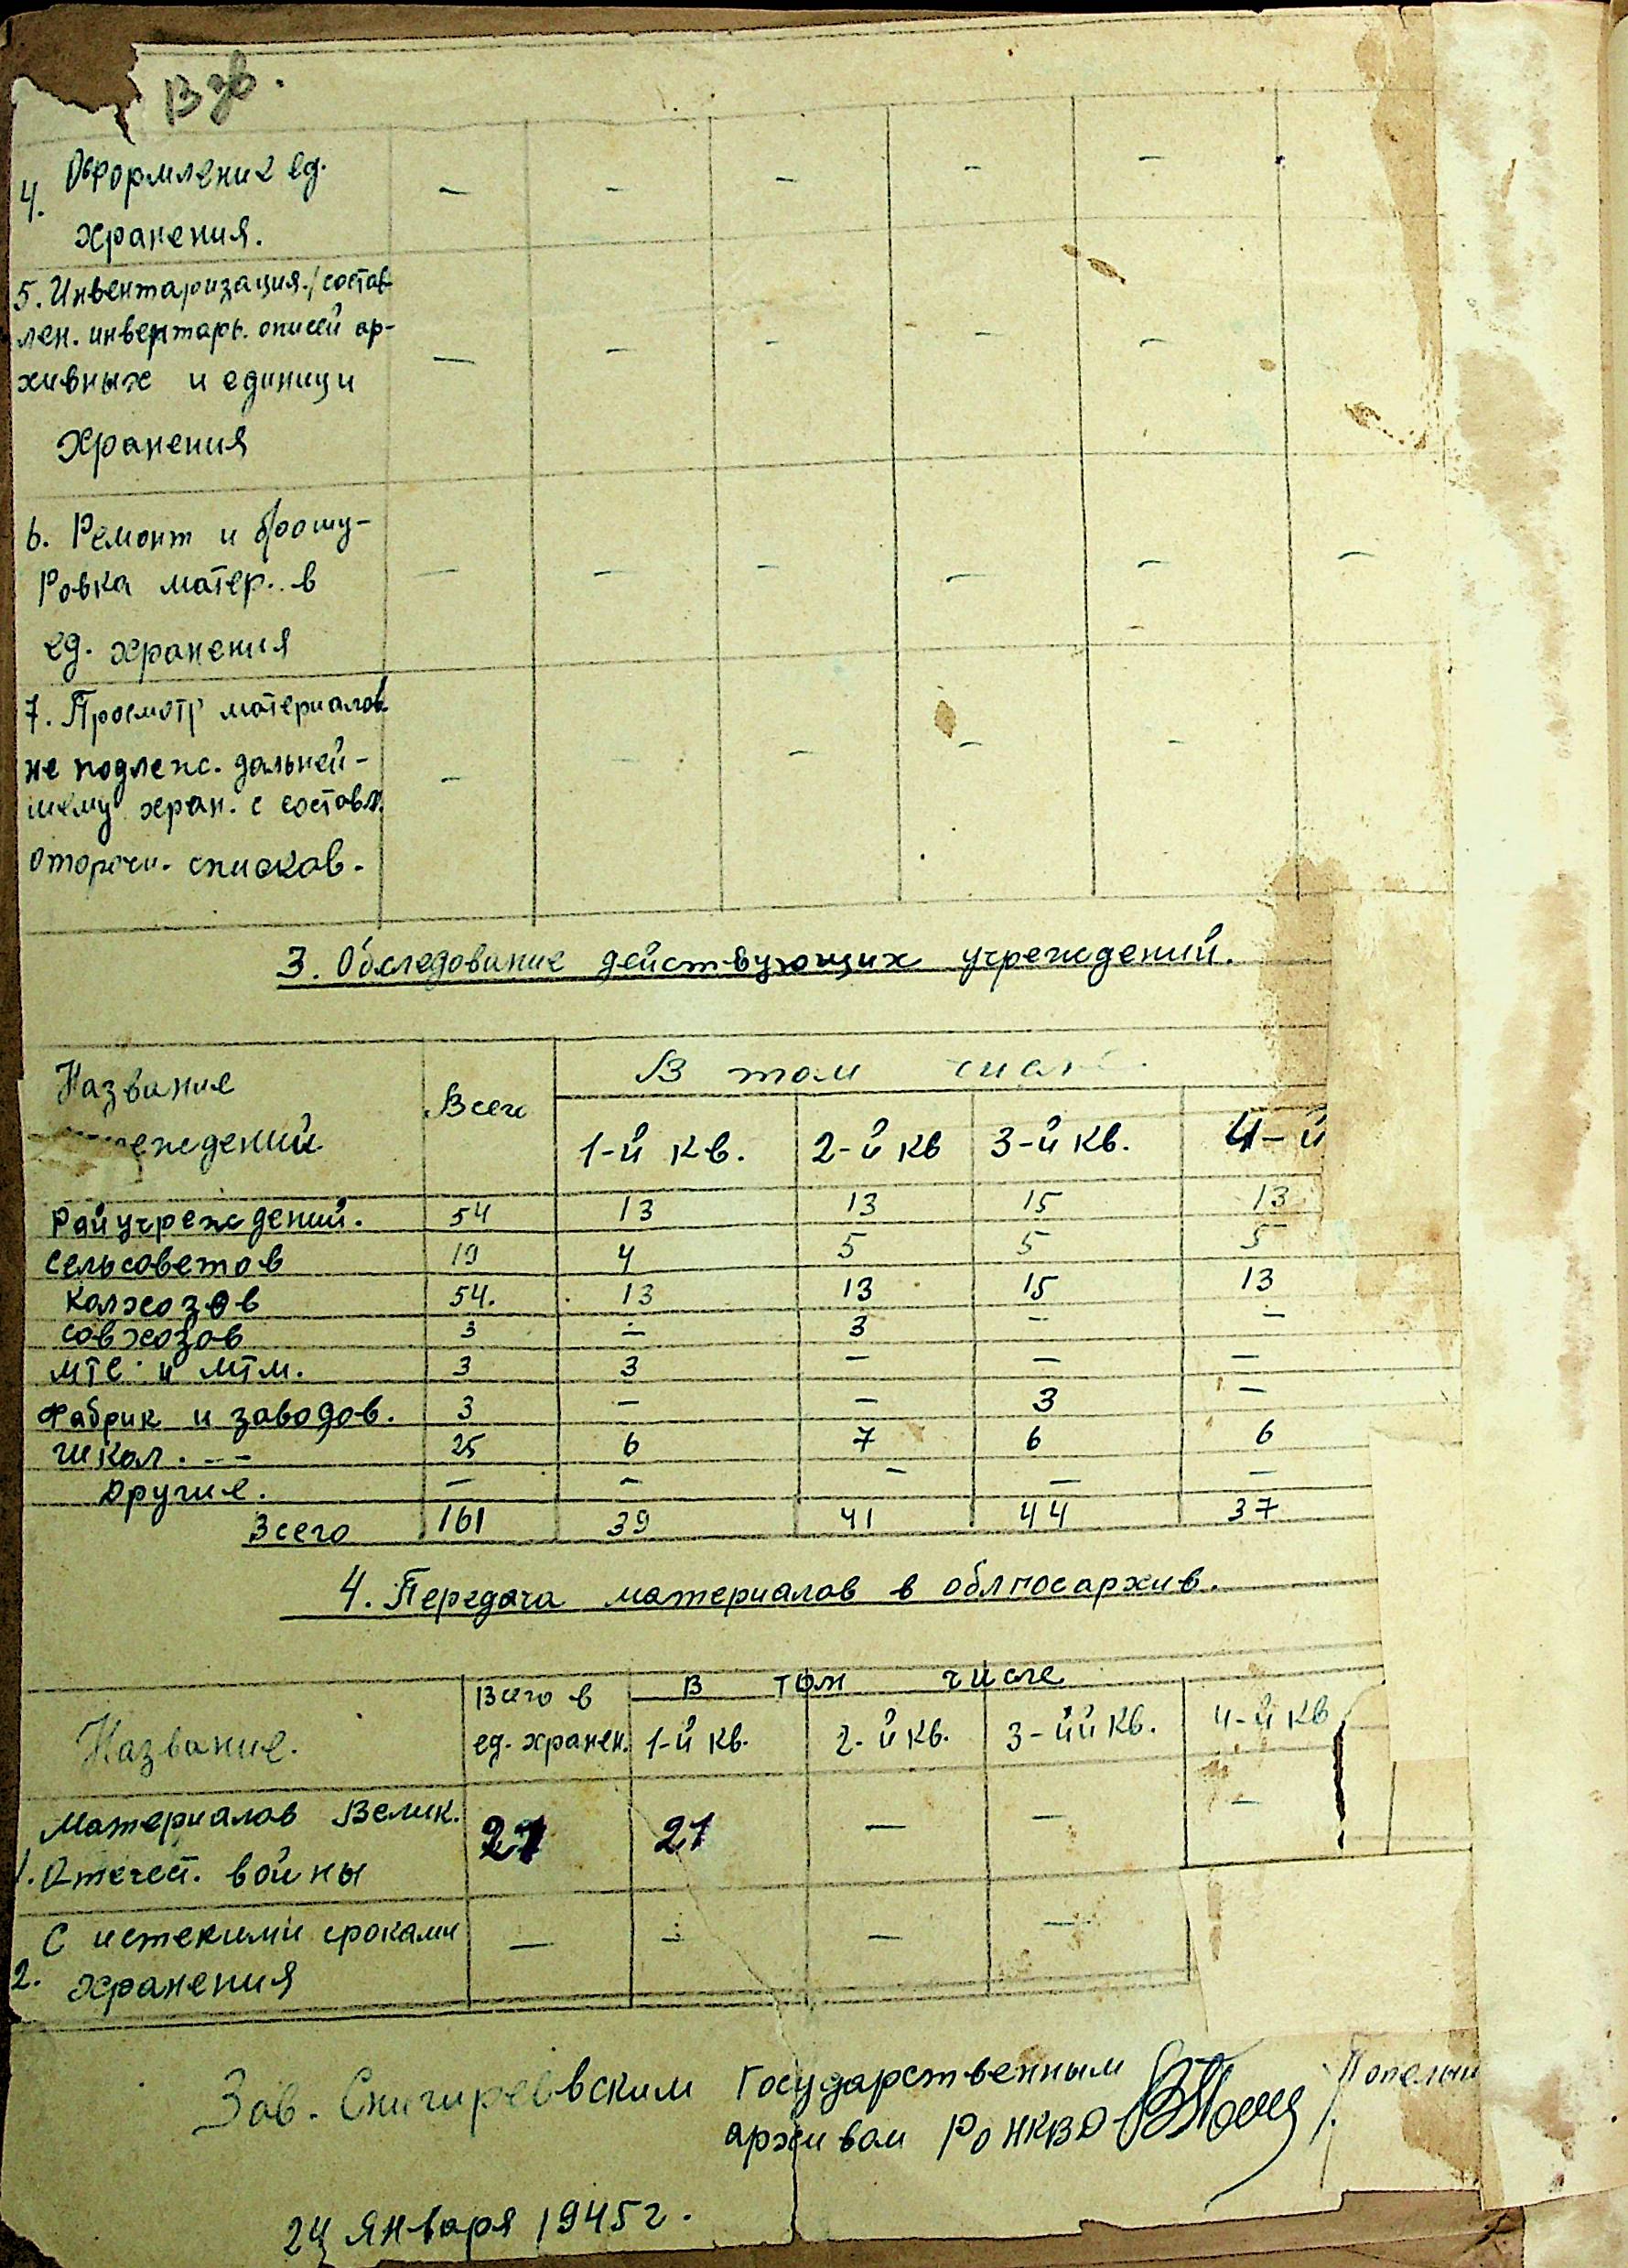 4. Оформление ед. — — — — —
хранения.
5. Инвентаризация./состав-
лен. инвентарь. описей ар- — — — — —
хивных и единици
хранения
6. Ремонт и брошу-
ровка матер. в — — — — — —
ед. хранения
7. Просмотр материалов
не подлеж. дальней- — — — — —
шему хран. с составл.
списков.
3. Обследование действующих учреждений.
Название Всего В том числ
еждений 1-й кв. 2-й кв 3-й кв. 4-й
Райучреждений. 54 13 13 15 13
сельсоветов 19 4 5 5 5
колхозов 54. 13 13 15 13
совхозов 3 — 3 — —
МТС и МТМ. 3 3 — — —
Фабрик и заводов. 3 — — 3 —
школ. -- 25 6 7 6 6
другие. — — — — —
Всего 161 39 41 44 37
4. Передача материалов в облгосархив.
Название. Всего в В том числе
ед. хранен. 1-й кв. 2-й кв. 3-йй кв. 4-й кв
Материалов Велик. 21 21 — — —
1. Отечест. войны
С истекими сроками — — — —
2. хранения
Зав. Снигиревским Государственным
архивом РО НКВД
24 января 1945 г.